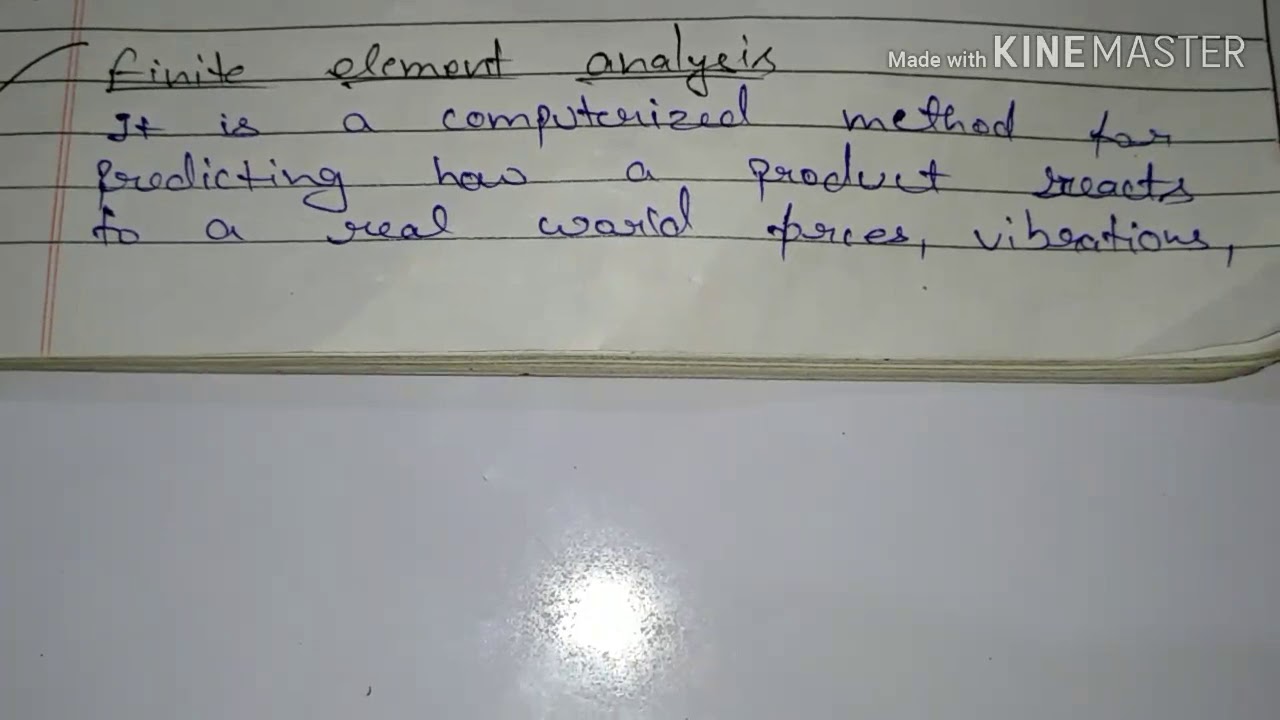 Made with KINEMASTER
Finite element analysis
It is a computerized method for
predicting how a product reacts
to a real world forces, vibrations,